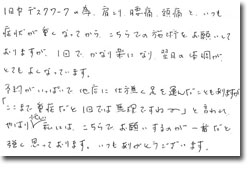 1日中デスクワークの為、肩こり、腰痛、頭痛と、いつも
症状が重くなってから、こちらでの施術をお願いして
おりますが、1回で、かなり楽になり、翌日の体調が
とてもよくなっています。
予約がいっぱいで他店に仕方無く足を運んだこともありますが
「ここまで重症だと1回では無理ですねー」と言われ、
やっぱり私には、こちらでお願いするのが一番だと
強く思っております。いつもありがとうございます。